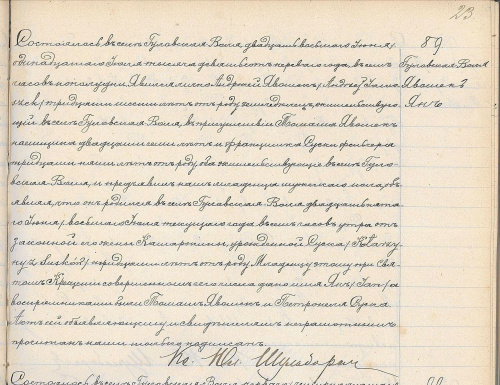 23
89
Гулавская Воля
Явошек
Янъ
Состоялось въ селѣ Гулавская Воля двадцать восьмого Іюня/
одинадцатого Іюля тысяча девятьсотъ перваго года, въ семь
часовъ пополудни. Явился лично Андржей Явошекъ /Andrzej Jawo
szek/ тридцати шести лѣтъ отъ роду земледѣлецъ, жительствую
щій въ селѣ Гулавская Воля, въ присутствіи Томаша Явошекъ
двадцати семи лѣтъ и Францишка Суска
тридцати пяти лѣтъ отъ роду оба жительствующіе въ селѣ Гула
вская Воля, и предъявилъ намъ младенца мужескаго пола, объ
являя, что онъ родился въ селѣ Гулавская Воля двадцать пята
го Іюня/восьмаго Іюля текущаго года въ семь часовъ утра отъ
законной его жены Катаржины, урожденной Суска /Katarzy
ny z Susków/ тридцати лѣтъ отъ роду. Младенцу этому при Свя
томъ Крещеніи совершенномъ сего числа дано имя Янъ /Jan/ а
воспріемниками были Томашъ Явошекъ и Петронеля Суска
Актъ сей объявляющему и свидѣтелямъ неграмотнымъ
прочитанъ нами только подписанъ.
Кс.
Состоялось въ селѣ Гулавская Воля